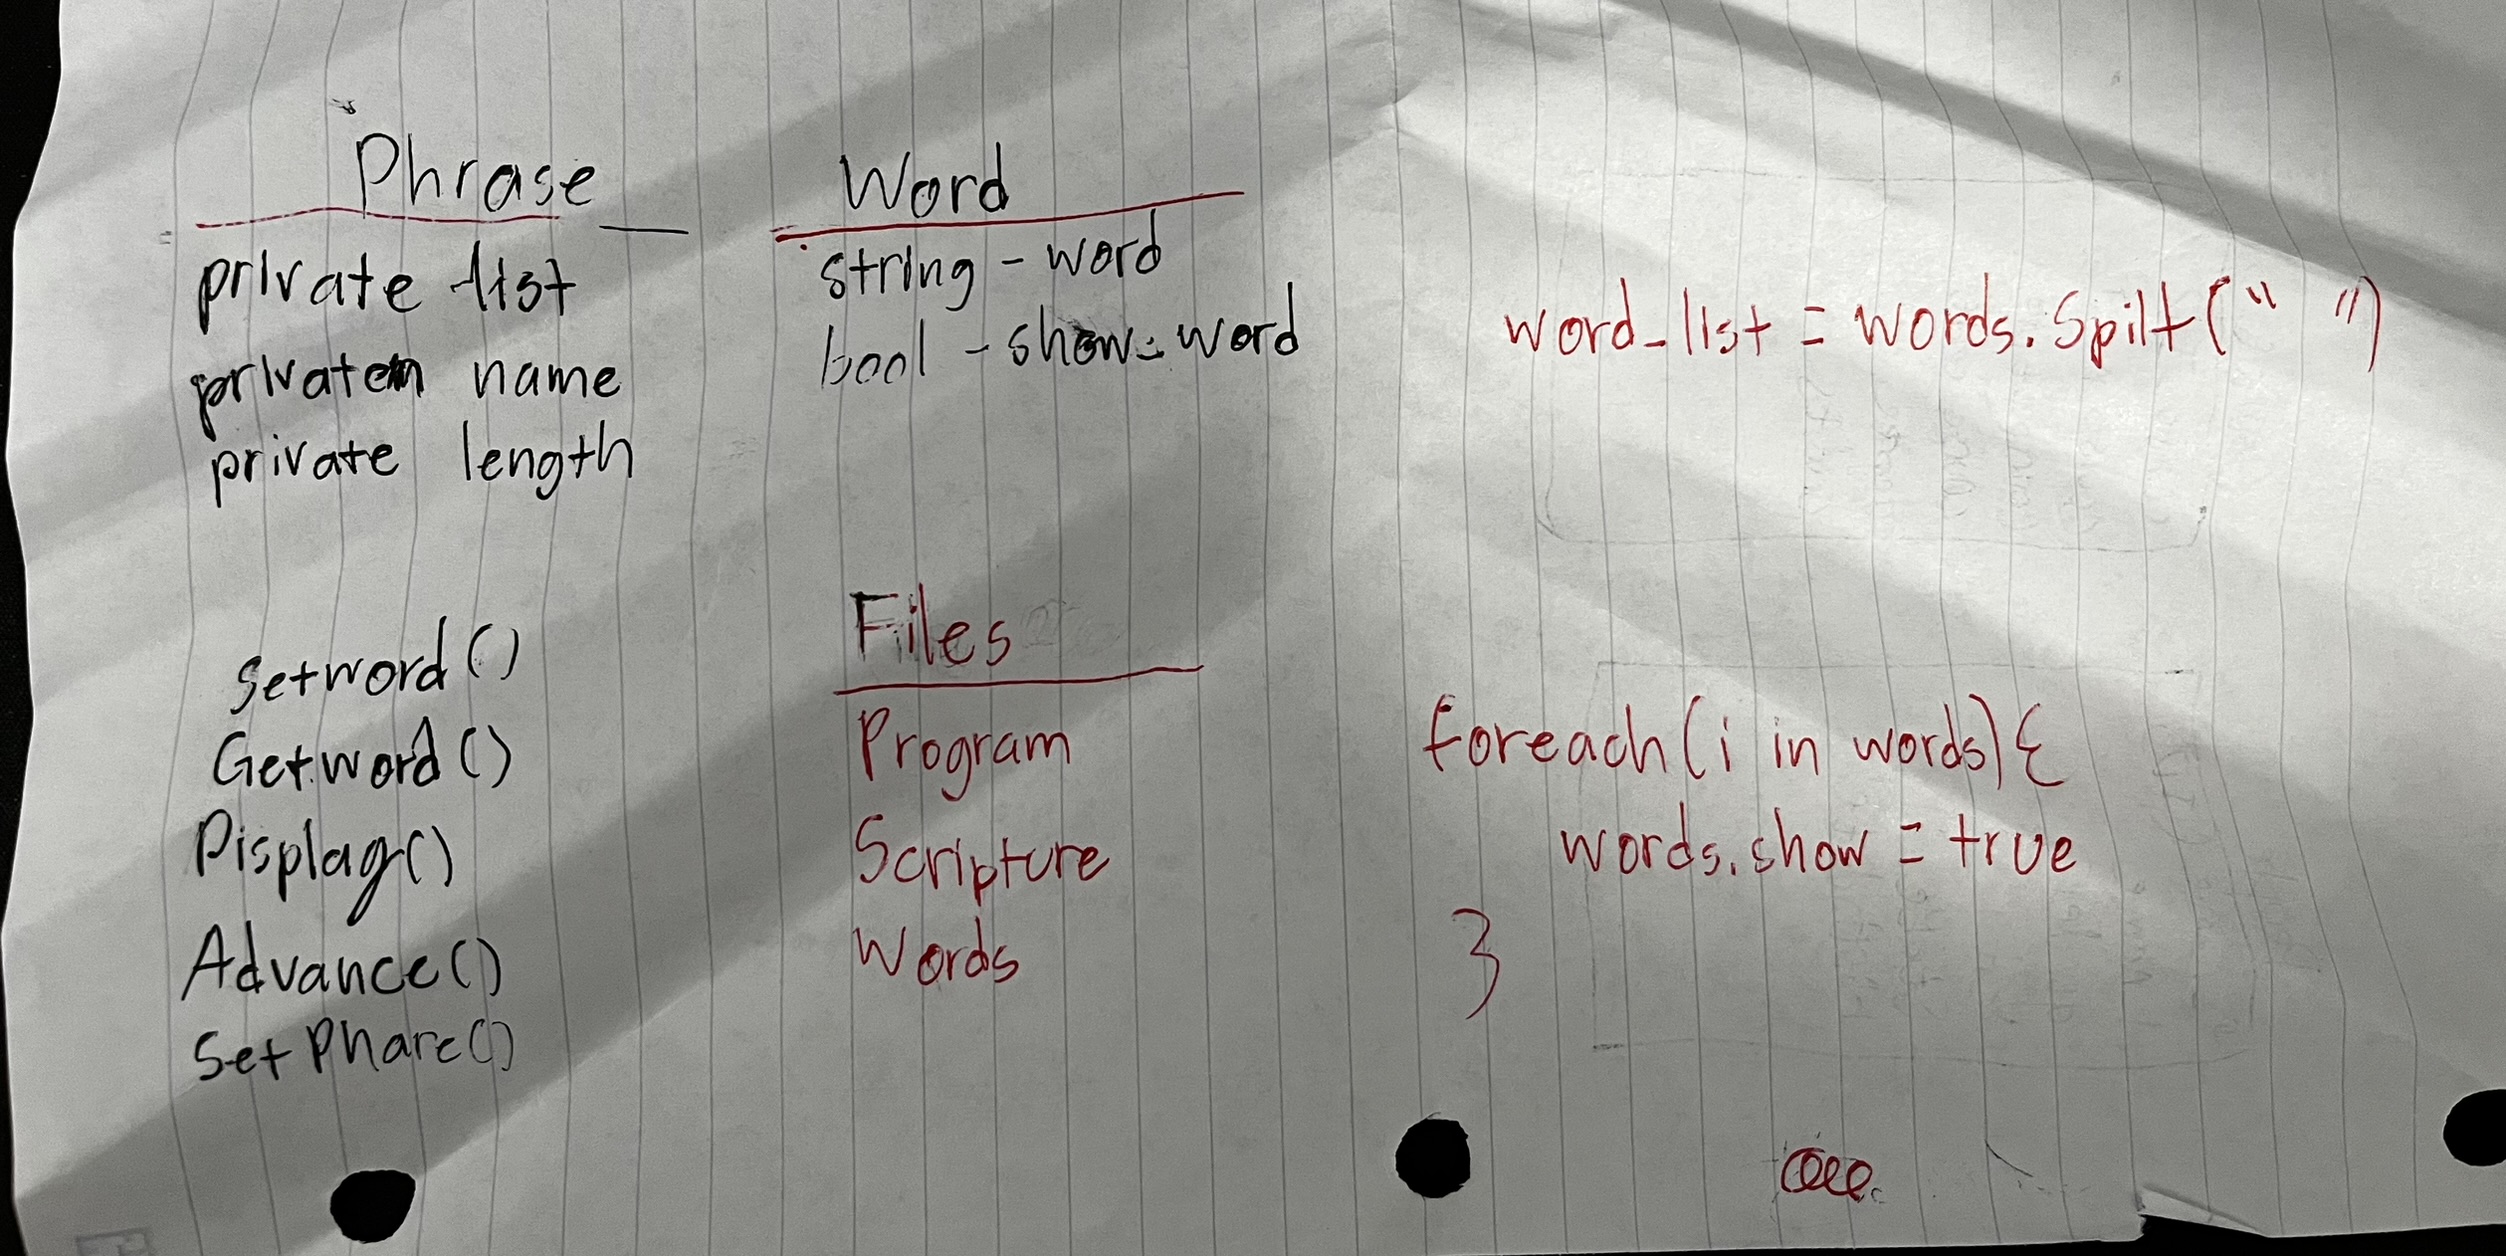 Phrase
private list
private name
private length
Setword()
Getword()
Display()
Advance()
Set Phare()
Word
string - word
bool - show-word
Files
Program
Scripture
Words
word_list = words.Spilt(" ")
foreach(i in words){
words.show = true
}